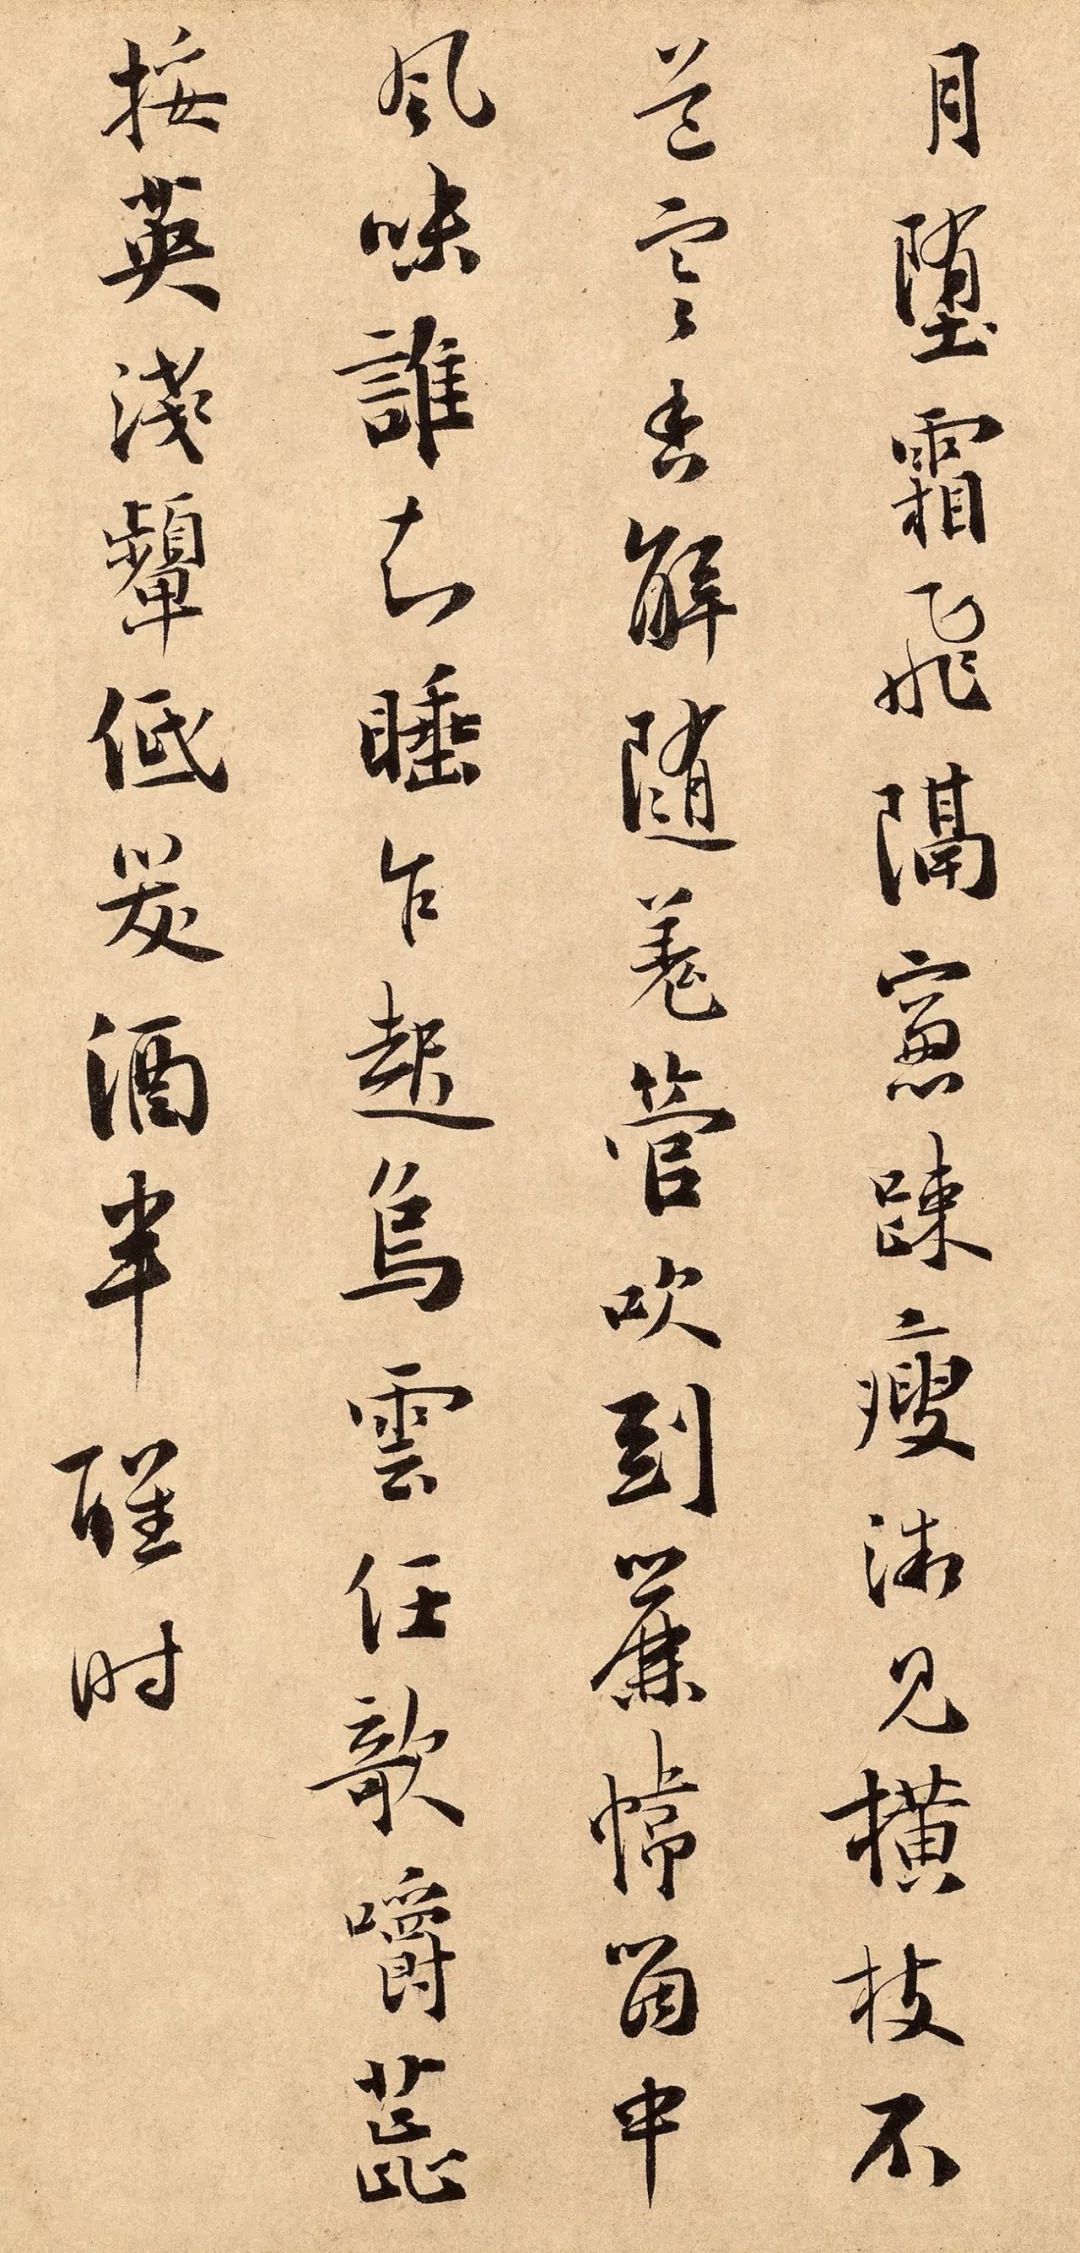 月墮霜飛隔窻踈瘦微見橫枝不
道寒香解隨羌管吹到簾幃箇中
風味誰知睡乍起烏雲任欹嚼蕊
挼英淺顰低笑酒半醒時